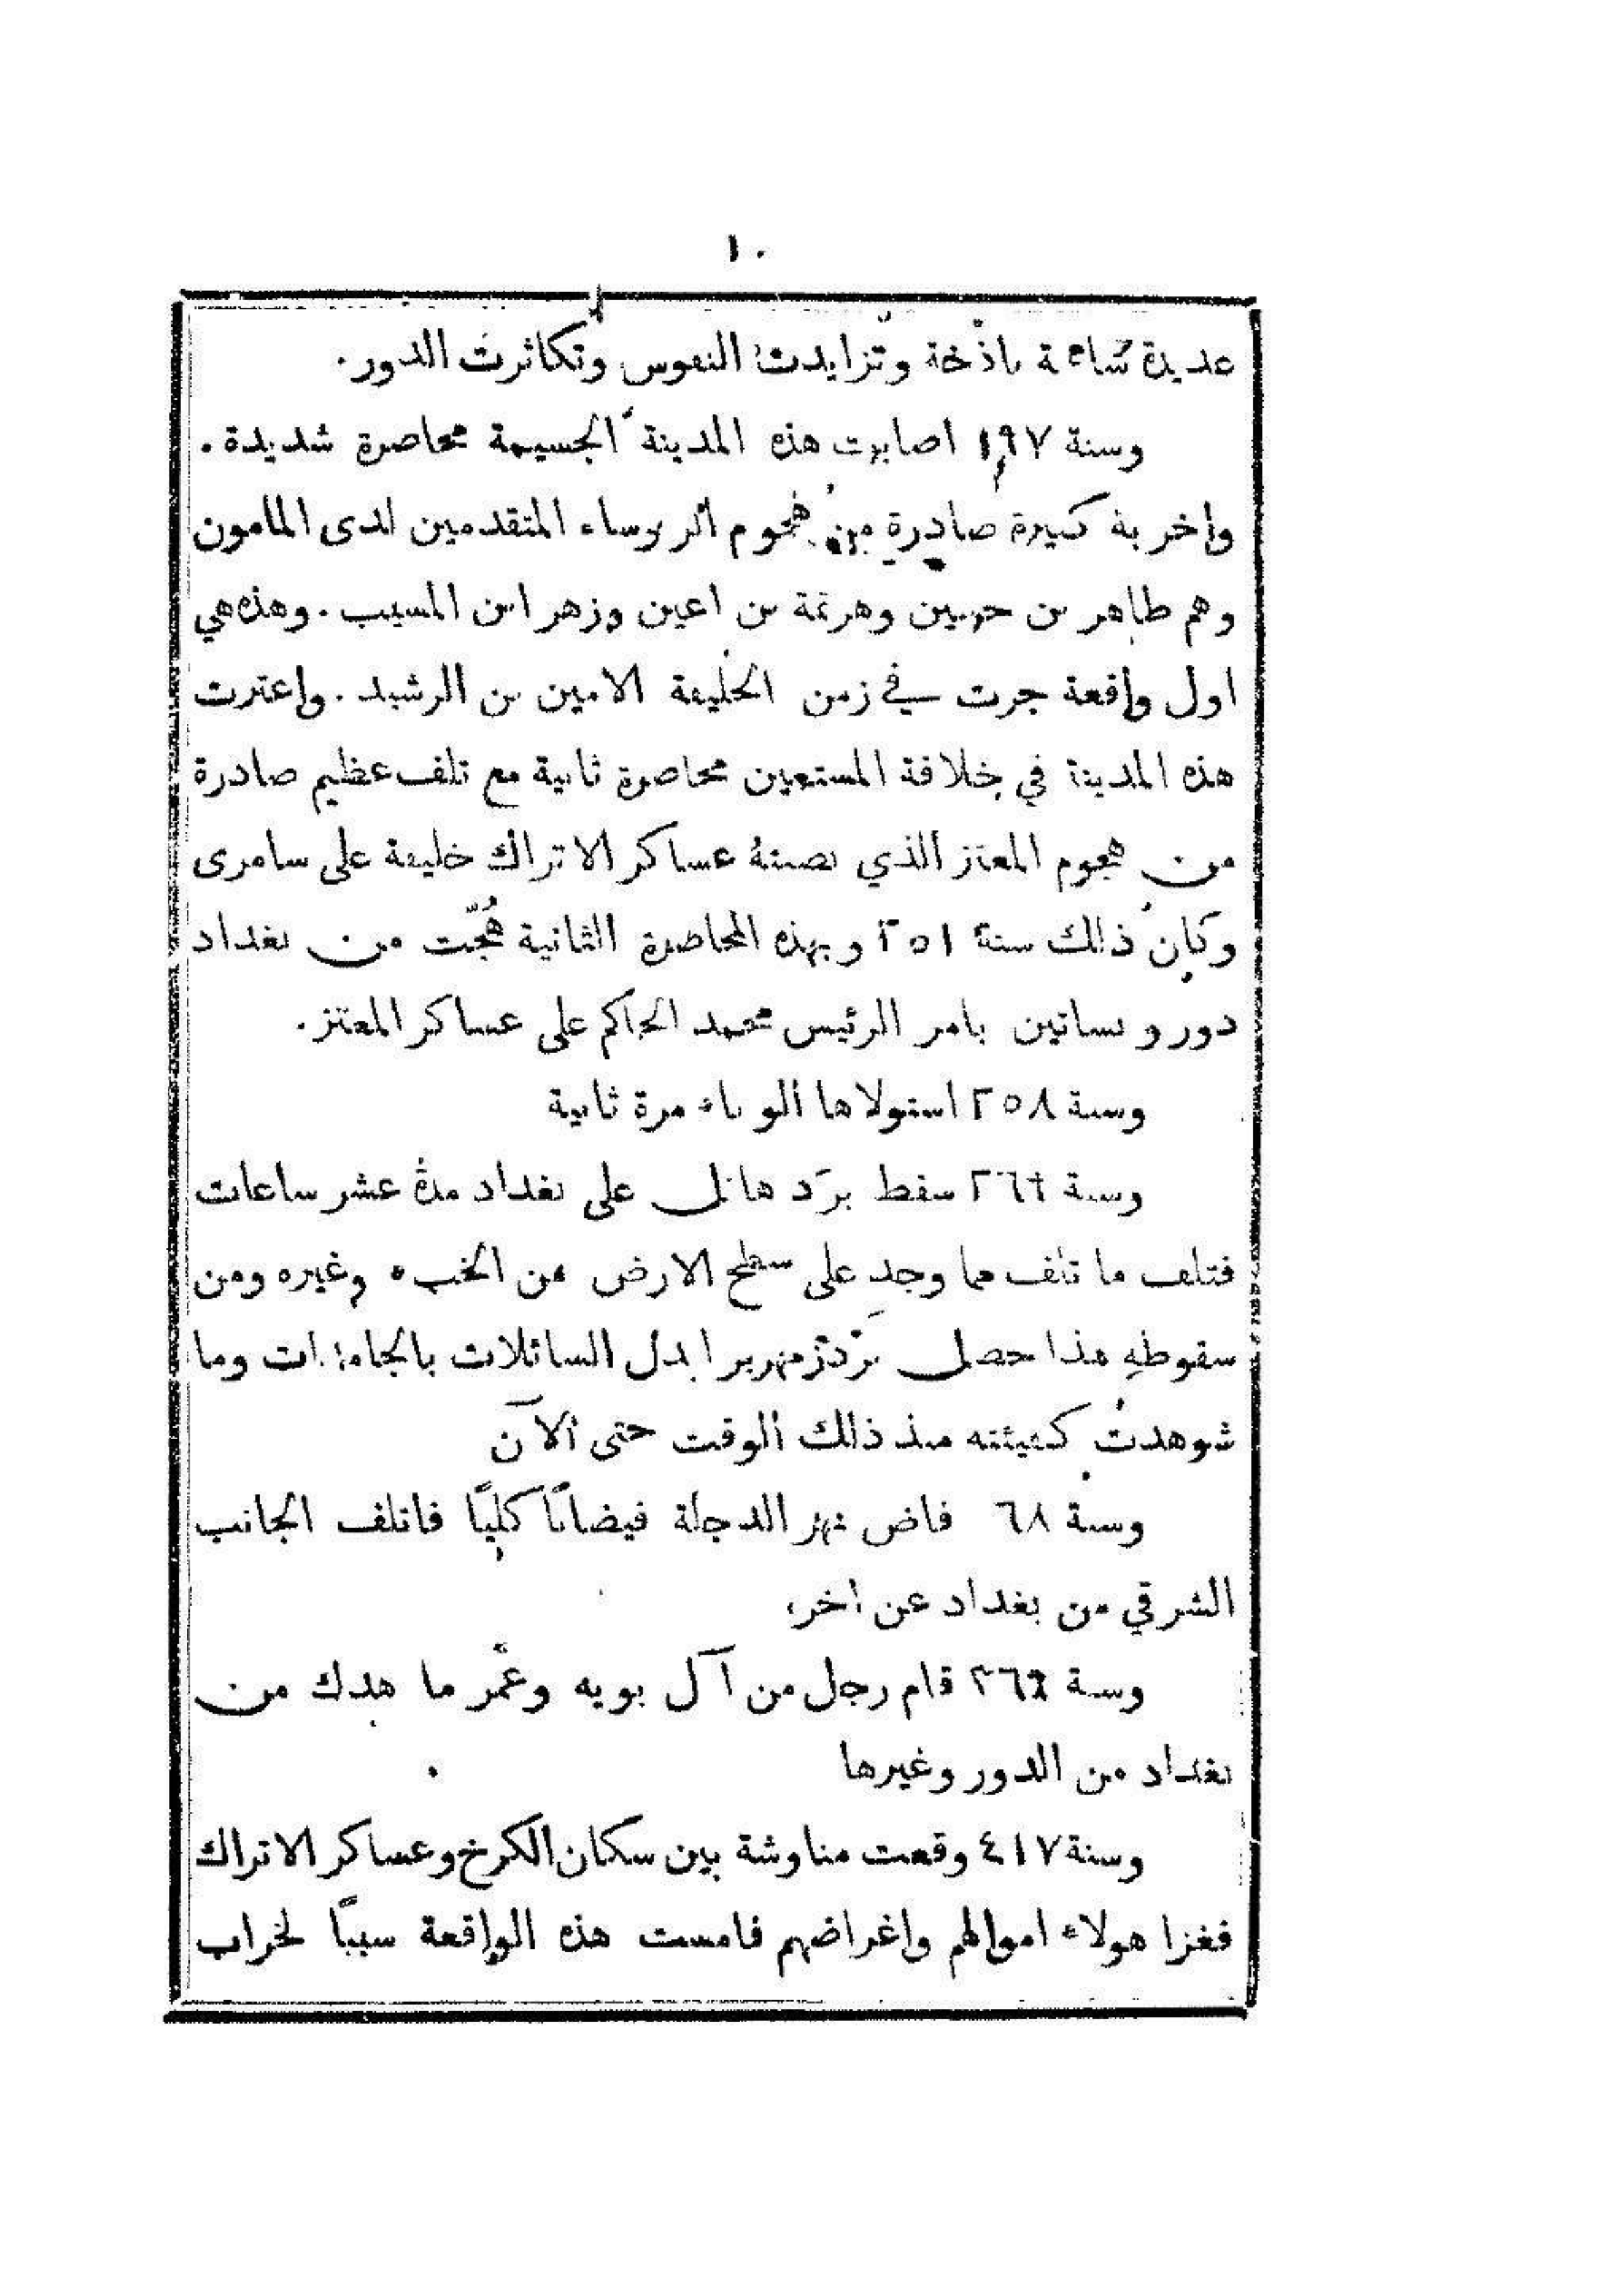 ١٠
عديدة شامخة باذخة وتزايدت النفوس وتكاثرت الدور.
وسنة ١٩٧ اصابت هذه المدينة الجسيمة محاصرة شديدة.
واخربة كبيرة صادرة من هجوم الروساء المتقدمين لدى المامون
وهم طاهر بن حسين وهرثمة بن اعين وزهر ابن المسيب. وهذه هي
اول واقعة جرت في زمن الخليفة الامين بن الرشيد. واعترت
هذه المدينة في خلافة المستعين محاصرة ثانية مع تلف عظيم صادرة
من هجوم المعتز الذي نصبته عساكر الاتراك خليفة على سامرى
وكان ذلك سنة ٢٥١ وبهذه المحاصرة الثانية هُجّت من بغداد
دور وبساتين بامر الرئيس محمد الحاكم على عساكر المعتز.
وسنة ٢٥٨ استولاها الوباء مرة ثانية
وسنة سقط برَد هائل على بغداد مدة عشر ساعات
فتلف ما تلف مما وجد على سطح الارض من الخب وغيره ومن
سقوطهِ هذا حصل بَرْد زمهريرا بدل السائلات بالجامدات وما
شوهدت كهيئته منذ ذلك الوقت حتى الآن
وسنة ٦٨ فاض نهر الدجلة فيضانًا كليًا فاتلف الجانب
الشرقي من بغداد عن اخره
وسنة قام رجل من آل بويه وعمَّر ما هدك من
بغداد من الدور وغيرها
وسنة ٤١٧ وقعت مناوشة بين سكان الكرخ وعساكر الاتراك
فغزا هولاء اموالهم واغراضهم فامست هذه الواقعة سببًا لخراب